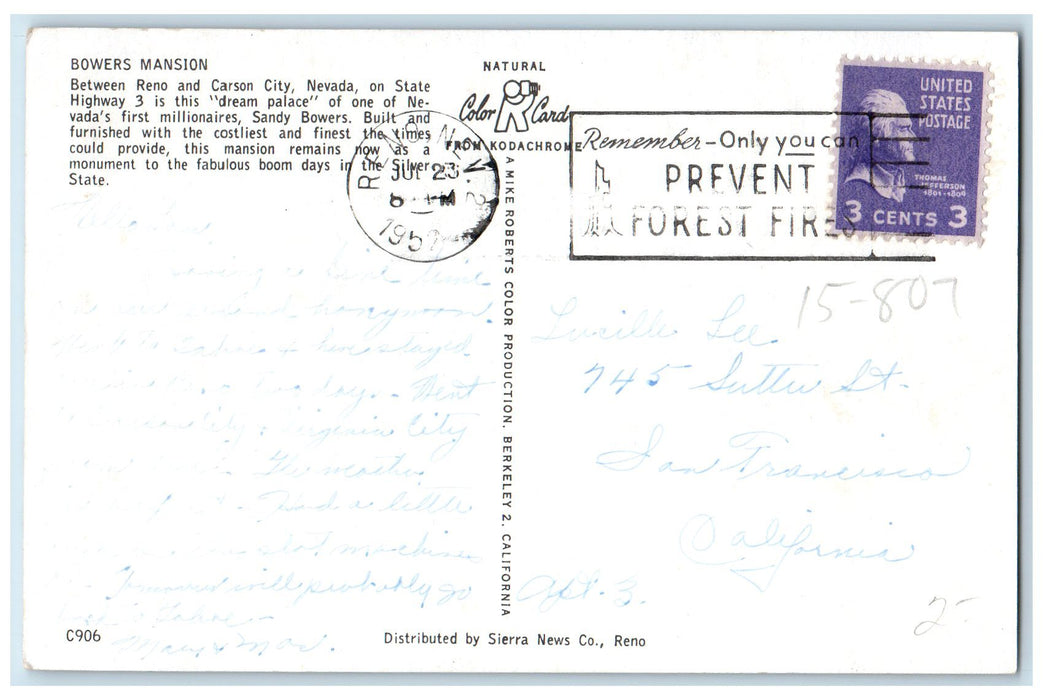 BOWERS MANSION
Between Reno and Carson City, Nevada, on State
Highway 3 is this "dream palace" of one of Ne-
vada's first millionaires, Sandy Bowers. Built and
furnished with the costliest and finest the times
could provide, this mansion remains now as a
monument to the fabulous boom days in the Silver
State.
NATURAL
Color Card
FROM KODACHROME
RENO NEV. 2
JUL 23
8
195
Remember-Only you can
PREVENT
FOREST FIRES
UNITED
STATES
POSTAGE
THOMAS
JEFFERSON
1801-1809
3 CENTS 3
A MIKE ROBERTS COLOR PRODUCTION. BERKELEY 2. CALIFORNIA
15-807
having a time
honeymoon.
Tahoe + have stayed
two days - Went
City + Virginia City
The weather
Had a little
slot machine
Tomorrow will probably go
to Tahoe
Lucille Lee
745 Sutter St.
San Francisco
California
Apt. 3.
2-
C906
Distributed by Sierra News Co., Reno